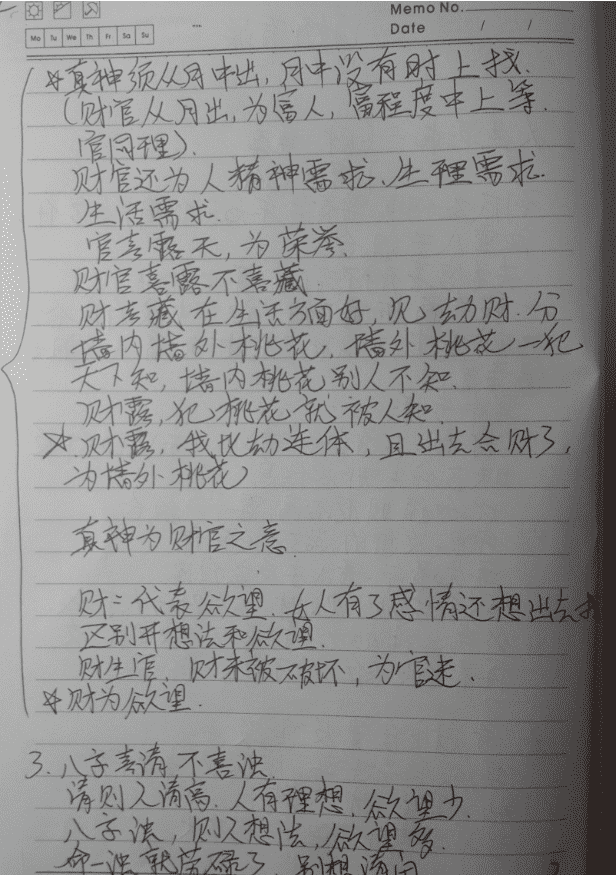 Memo No.
Date / /
Mo Tu We Th Fr Sa Su
☆真神须从月中出,月中没有时上找.
(财官从月出,为富人,富程度中上等.
官同理).
财官还为人精神需求、生理需求.
生活需求.
官喜露天,为荣誉.
财官喜露不喜藏
财喜藏在生活方面好,见劫财.分
墙内墙外桃花,墙外桃花一犯
天下知,墙内桃花别人不知.
财露,犯桃花就被人知.
☆财露,我比劫连体,且出去合财了,
为墙外桃花
真神为财官之意.
财:代表欲望.女人有了感情还想出去找
区别开想法和欲望.
财生官,财未被破坏,为官迷.
☆财为欲望.
3.八字喜清不喜浊
清则人清高.人有理想,欲望少.
八字浊,则人想法,欲望多.
命一浊就劳碌了,别想清闲